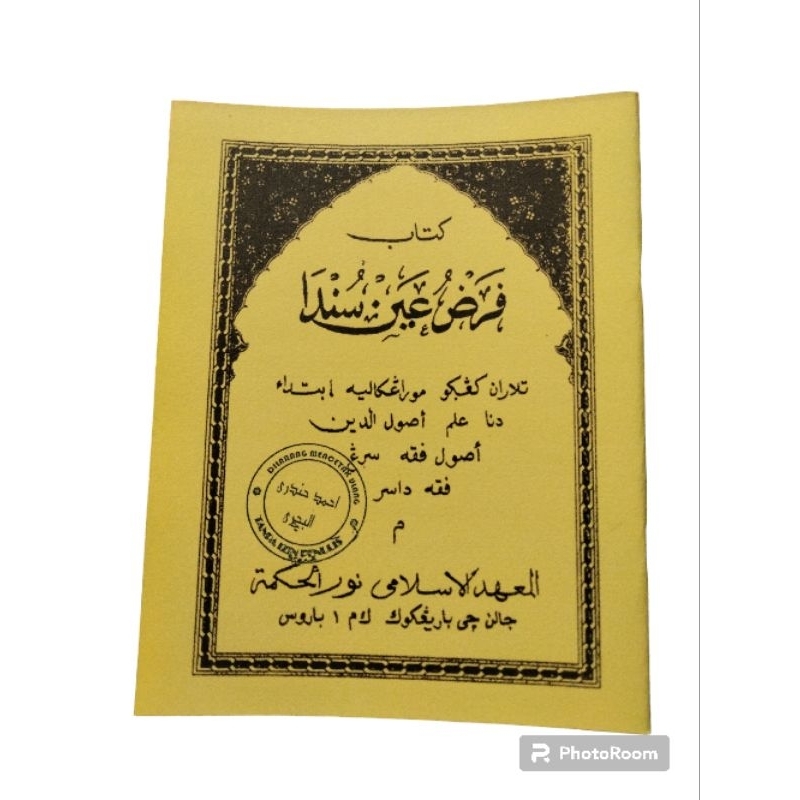 كتاب
فَرَضُ عَيْن سُنْدَا
تلاران كڠڮو موراڠكاليه إبتداء
دنا علم أصول الدين
أصول فقه سرڠ
فقه داسر
م
المعهد الاسلامى نور الحكمة
جالن چي باريڠكوك ك م ١ باروس
DILARANG MENCETAK ULANG
احمد حندرى
TANPA IZIN PENULIS
PhotoRoom